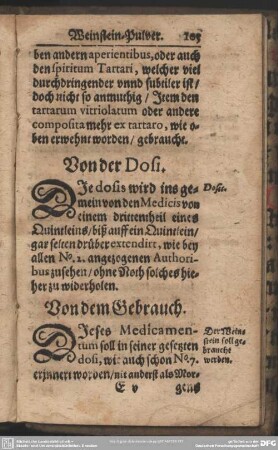 Weinstein-Pulver. 105
ben andern aperientibus, oder auch
den spiritum Tartari, welcher viel
durchdringender vnnd subtiler ist/
doch nicht so anmuthig / Item den
tartarum vitriolatum oder andere
composita mehr ex tartaro, wie o-
ben erwehnt worden / gebraucht.
Von der Dosi.
DJe dosis wird ins ge-
Dosis.
mein von den Medicis von
einem drittentheil eines
Quintleins / biß auff ein Quintlein /
gar selten drüber extendirt, wie bey
allen No. 2. angezogenen Authori-
bus zusehen / ohne Noth solches hie-
her zu widerholen.
Von dem Gebrauch.
DJeses Medicamen-
tum soll in seiner gesetzten
dosi, wie auch schon No. 7.
erinnert worden / nit anderst als Mor-
Der Wein-
stein soll ge-
braucht
werden.
E v gens